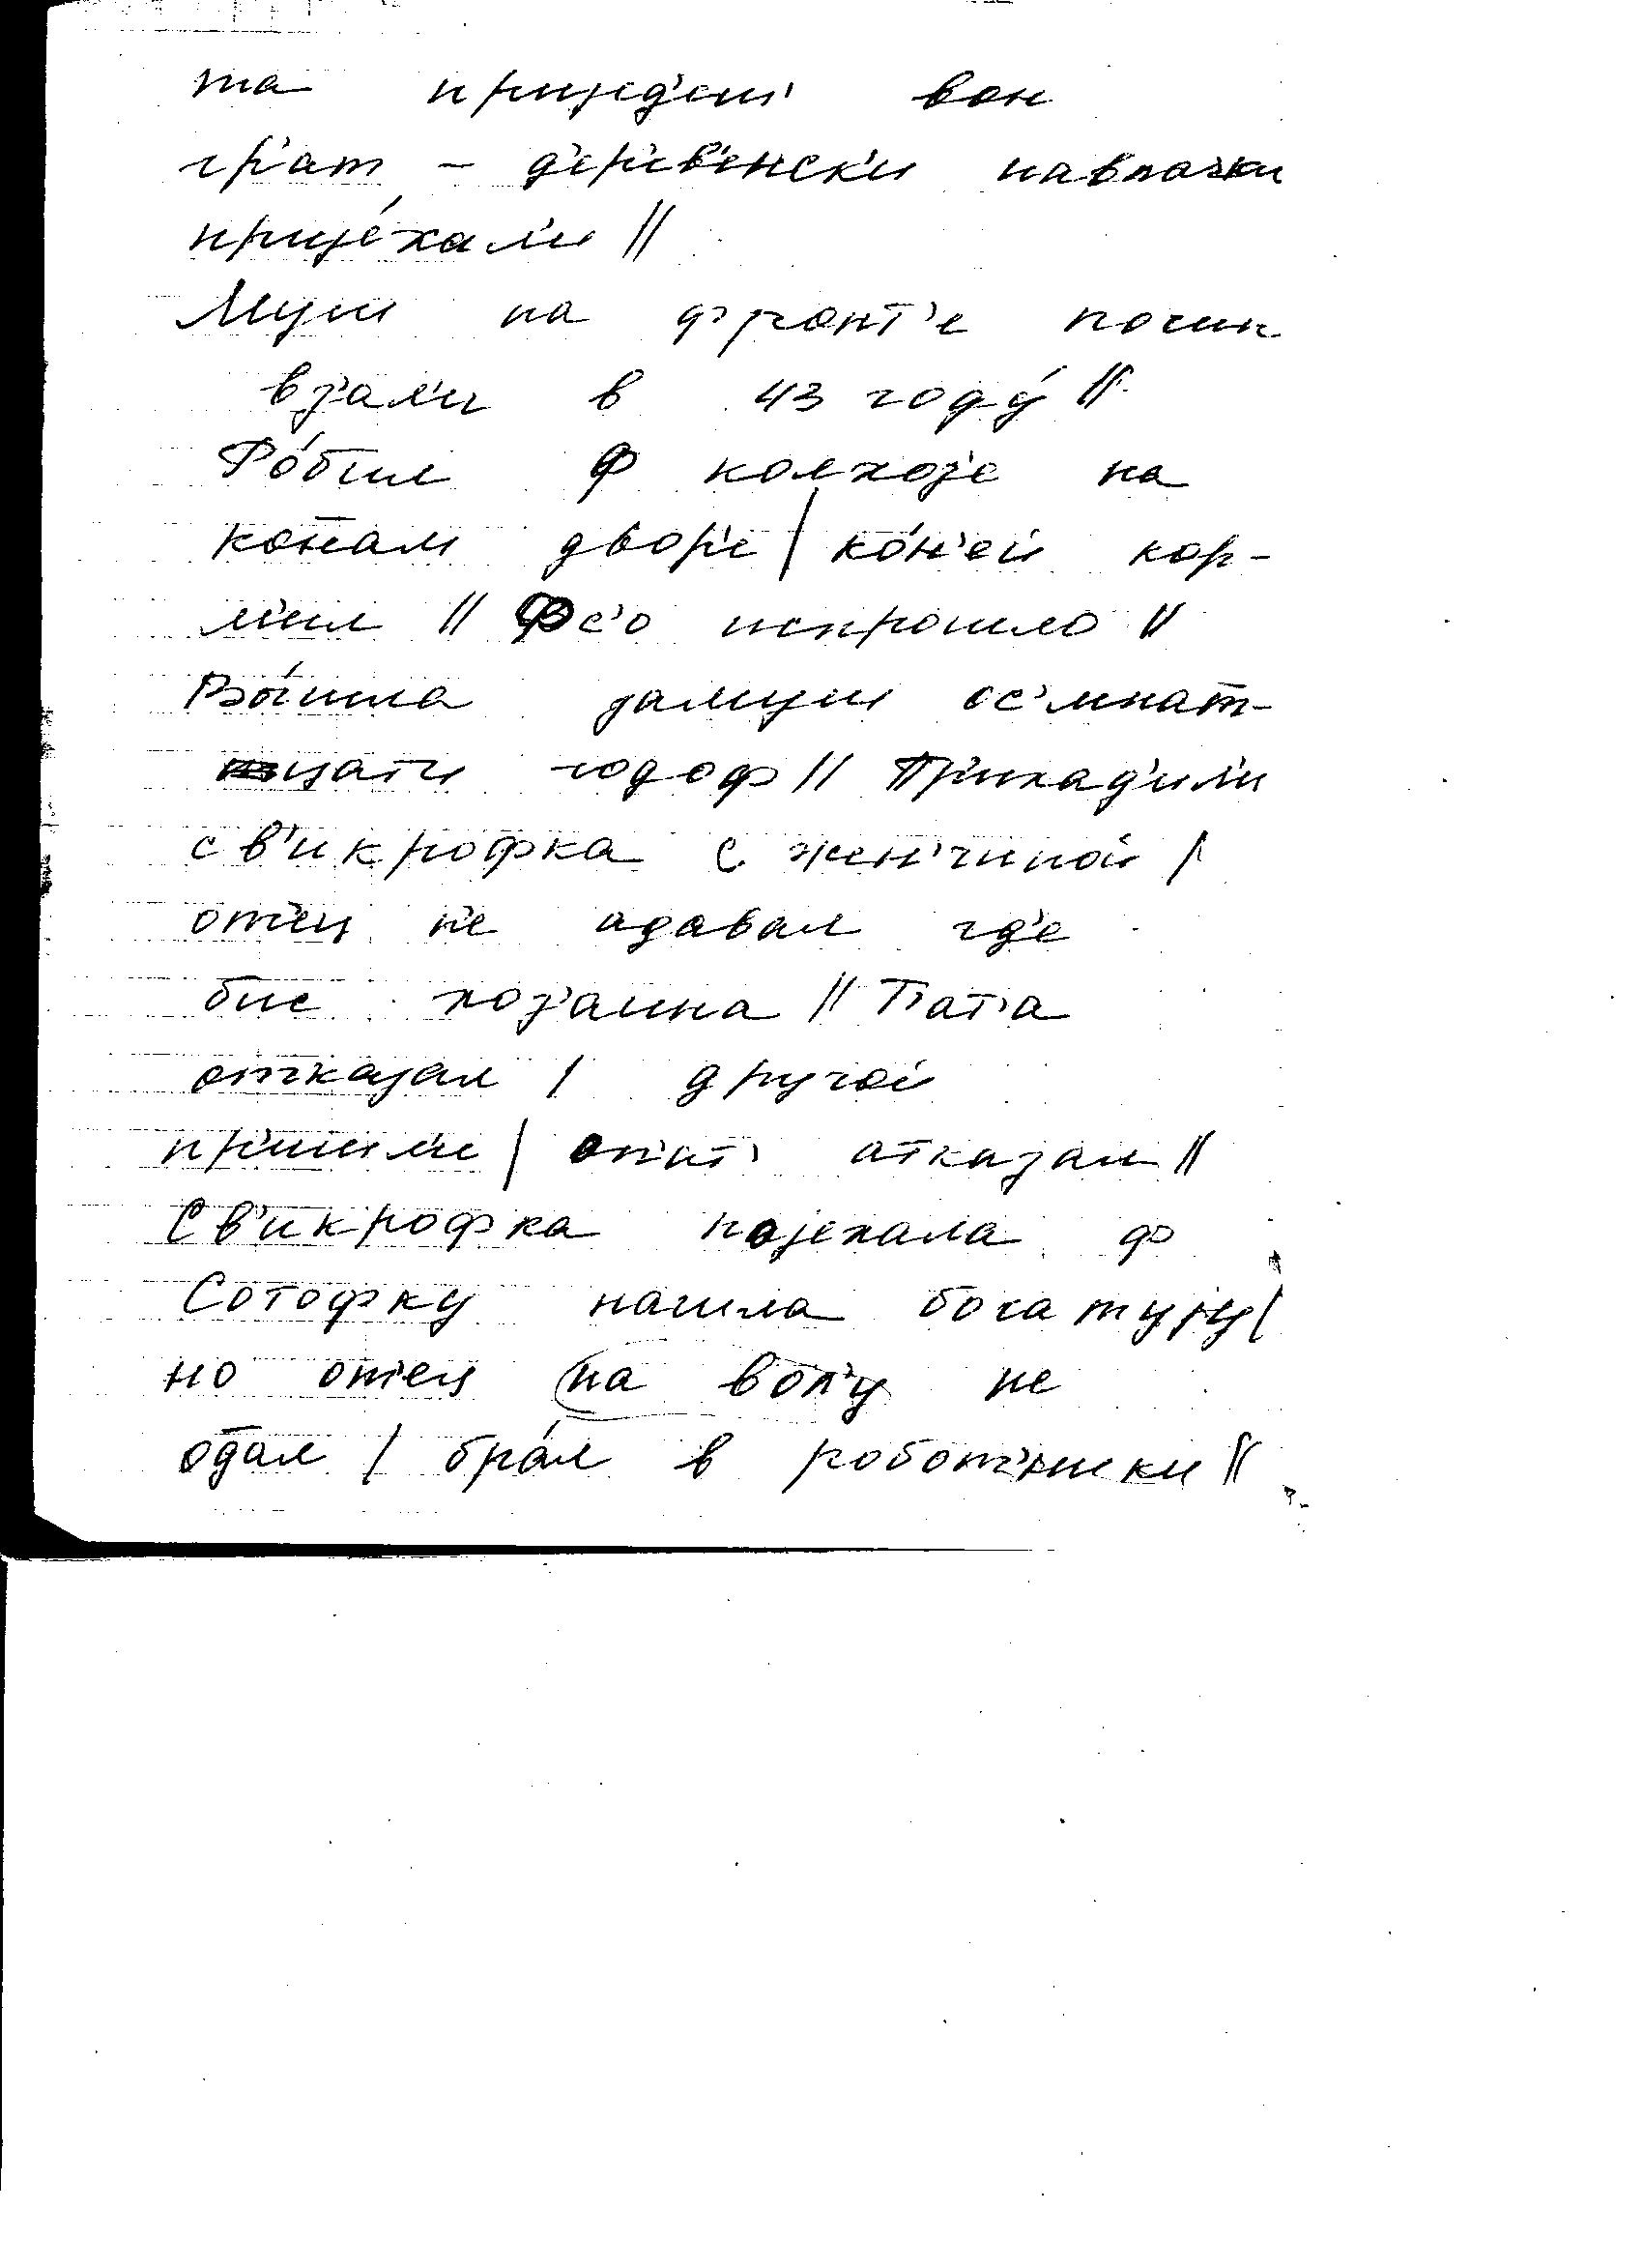 та приjед'еш' вон
гр'ат – д'ер'ев'енск'и
приjéхал'и ||
Муш на фронт'е погип
вз'ал'и в 43 годý ||
Рóбил ф колхоз'е на
кон'ам двор'е | кóн'ей кор-
м'ил || Фс'о испрошло ||
Вы́шла замуш ос'мнат-
цати годоф || Пр'иход'ил'и
св'икрофка с жен'чиной |
от'ец н'е адавал гд'е
бис хоз'аина || Т'ат'а
отказал | другой
пр'ишл'и | оп'ат' атказал ||
Св'икрофка поjехала ф
Сотофку нашла богатуjу |
но от'ец на вол'у не
одал | брáл в работ'н'ики ||